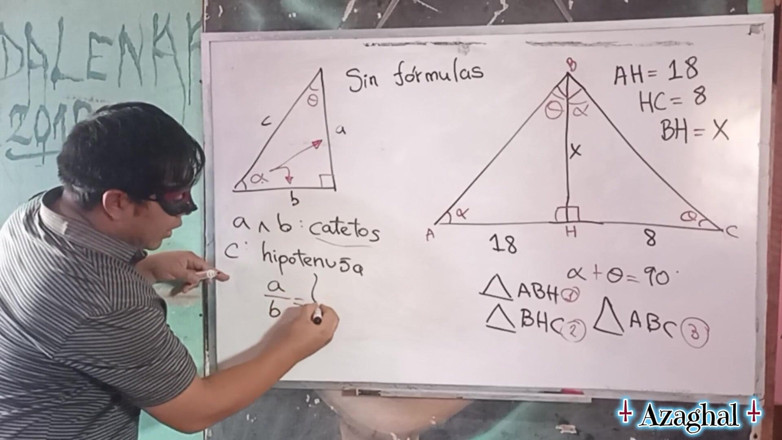 DALENA
201
Sin fórmulas
θ
c
a
α
b
a ∧ b : catetos
c : hipotenusa
a
b =
B
θ α
x
α θ
A H C
18 8
AH = 18
HC = 8
BH = X
α + θ = 90°
△ ABH 1
△ BHC 2 △ ABC 3
Azaghal